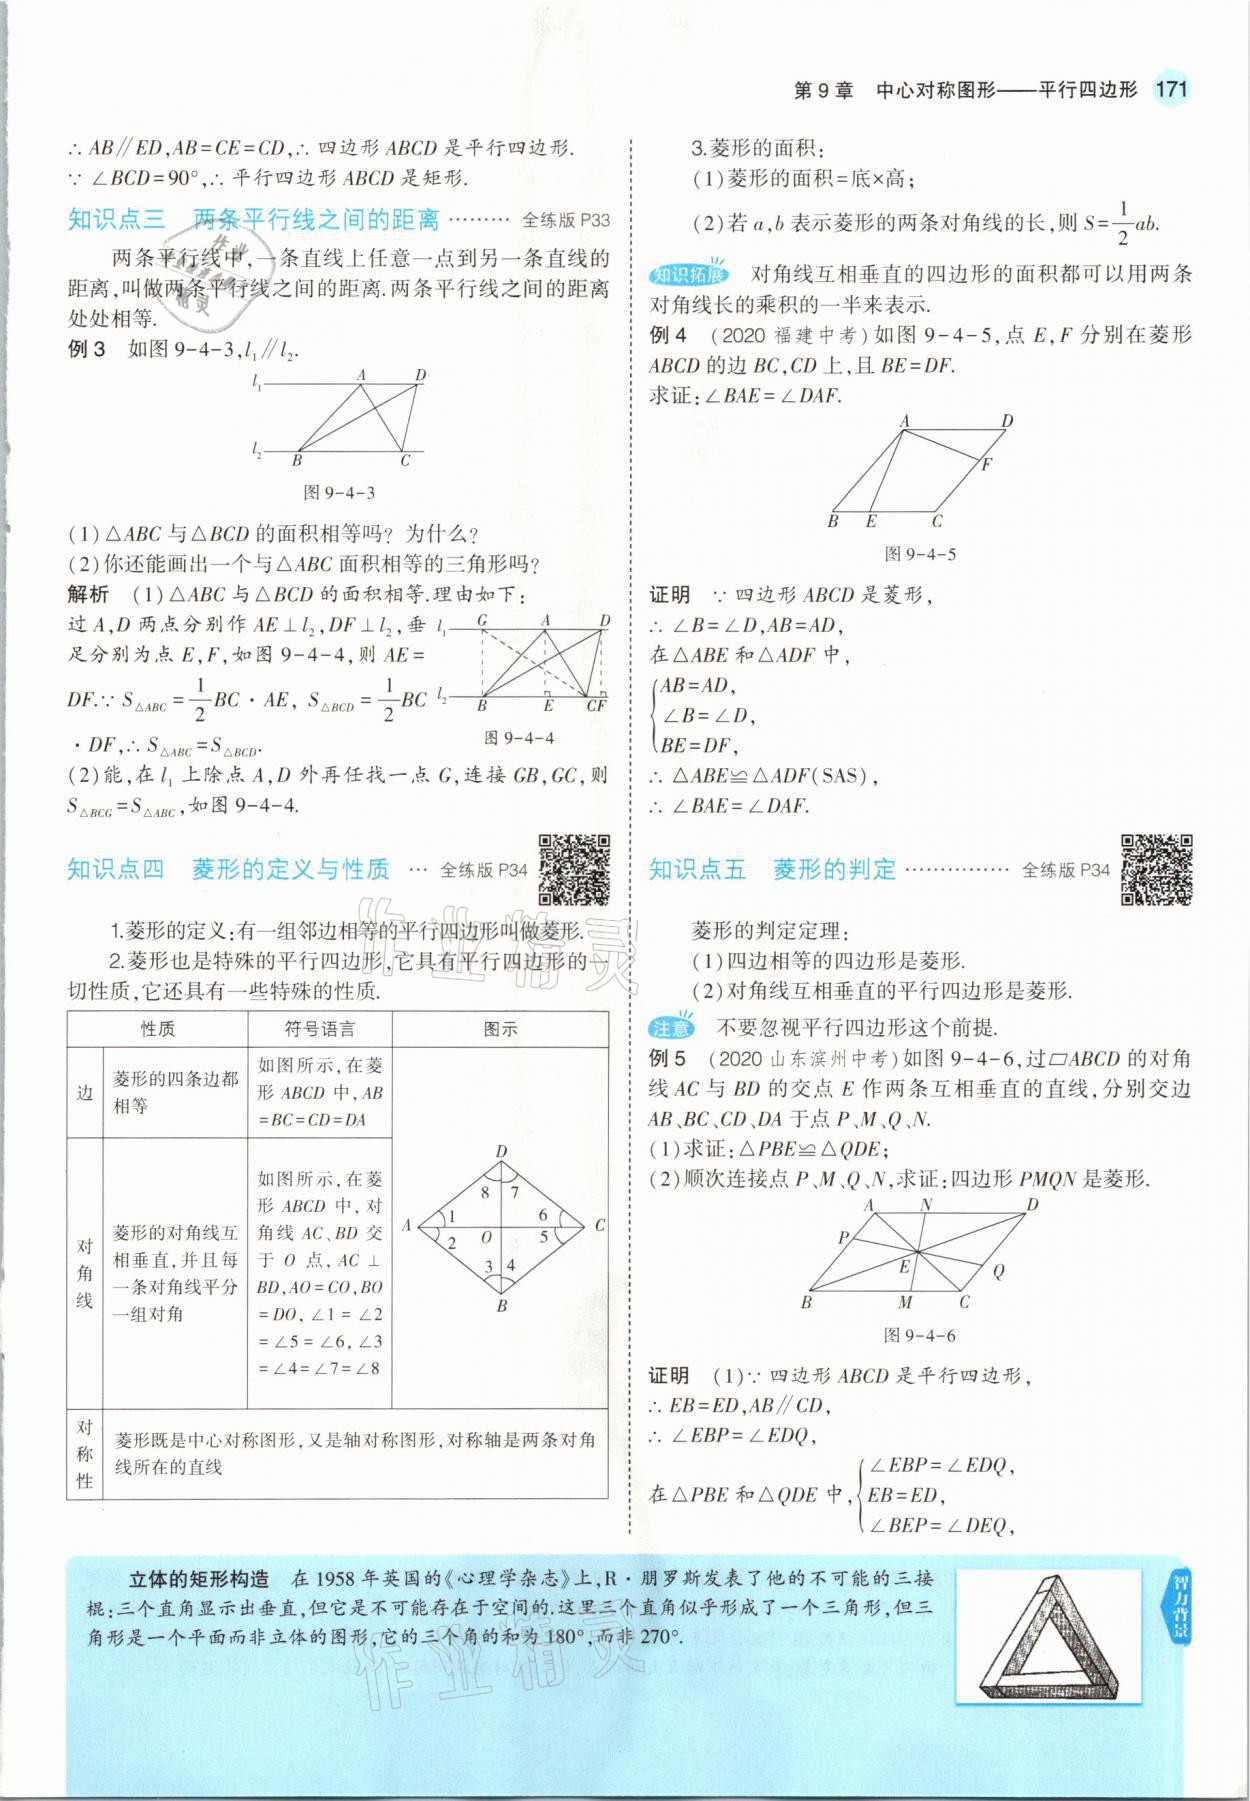 第9章 中心对称图形——平行四边形 171
∴ AB∥ED,AB=CE=CD,∴ 四边形 ABCD 是平行四边形.
∵ ∠BCD=90°,∴ 平行四边形 ABCD 是矩形.
知识点三 两条平行线之间的距离 ········· 全练版 P33
两条平行线中,一条直线上任意一点到另一条直线的
距离,叫做两条平行线之间的距离.两条平行线之间的距离
处处相等.
例3 如图 9-4-3,l₁∥l₂.
l₁ A D
l₂ B C
图 9-4-3
(1)△ABC 与△BCD 的面积相等吗? 为什么?
(2)你还能画出一个与△ABC 面积相等的三角形吗?
解析 (1)△ABC 与△BCD 的面积相等.理由如下:
过 A,D 两点分别作 AE⊥l₂,DF⊥l₂,垂
足分别为点 E,F,如图 9-4-4,则 AE=
DF.∵ S△ABC=1/2 BC·AE, S△BCD=1/2 BC
·DF,∴ S△ABC=S△BCD.
l₁ G A D
l₂ B E CF
图 9-4-4
(2)能,在 l₁ 上除点 A,D 外再任找一点 G,连接 GB,GC,则
S△BCG=S△ABC,如图 9-4-4.
知识点四 菱形的定义与性质 ··· 全练版 P34
1.菱形的定义:有一组邻边相等的平行四边形叫做菱形.
2.菱形也是特殊的平行四边形,它具有平行四边形的一
切性质,它还具有一些特殊的性质.
性质 符号语言 图示
边
菱形的四条边都
相等
如图所示,在菱
形 ABCD 中,AB
=BC=CD=DA
对角线
菱形的对角线互
相垂直,并且每
一条对角线平分
一组对角
如图所示,在菱
形 ABCD 中,对
角线 AC、BD 交
于 O 点,AC⊥
BD,AO=CO,BO
=DO,∠1=∠2
=∠5=∠6,∠3
=∠4=∠7=∠8
D
8 7
A 1 6 C
2 O 5
3 4
B
对称性
菱形既是中心对称图形,又是轴对称图形,对称轴是两条对角
线所在的直线
3.菱形的面积:
(1)菱形的面积=底×高;
(2)若 a,b 表示菱形的两条对角线的长,则 S=1/2 ab.
知识拓展 对角线互相垂直的四边形的面积都可以用两条
对角线长的乘积的一半来表示.
例4 (2020 福建中考)如图 9-4-5,点 E,F 分别在菱形
ABCD 的边 BC,CD 上,且 BE=DF.
求证:∠BAE=∠DAF.
A D
F
B E C
图 9-4-5
证明 ∵ 四边形 ABCD 是菱形,
∴ ∠B=∠D,AB=AD,
在△ABE 和△ADF 中,
AB=AD,
∠B=∠D,
BE=DF,
∴ △ABE≌△ADF(SAS),
∴ ∠BAE=∠DAF.
知识点五 菱形的判定 ··············· 全练版 P34
菱形的判定定理:
(1)四边相等的四边形是菱形.
(2)对角线互相垂直的平行四边形是菱形.
注意 不要忽视平行四边形这个前提.
例5 (2020 山东滨州中考)如图 9-4-6,过▱ABCD 的对角
线 AC 与 BD 的交点 E 作两条互相垂直的直线,分别交边
AB、BC、CD、DA 于点 P、M、Q、N.
(1)求证:△PBE≌△QDE;
(2)顺次连接点 P、M、Q、N,求证:四边形 PMQN 是菱形.
A N D
P
E Q
B M C
图 9-4-6
证明 (1)∵ 四边形 ABCD 是平行四边形,
∴ EB=ED,AB∥CD,
∴ ∠EBP=∠EDQ,
在△PBE 和△QDE 中,
∠EBP=∠EDQ,
EB=ED,
∠BEP=∠DEQ,
立体的矩形构造 在 1958 年英国的《心理学杂志》上,R·朋罗斯发表了他的不可能的三接
棍:三个直角显示出垂直,但它是不可能存在于空间的.这里三个直角似乎形成了一个三角形,但三
角形是一个平面而非立体的图形,它的三个角的和为 180°,而非 270°.
智力背景
作业精灵
作业精灵